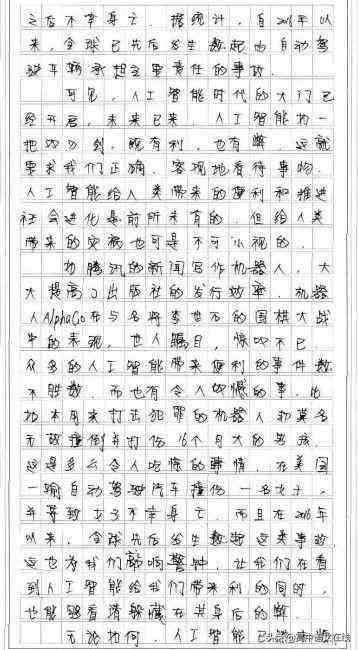 之后不幸身亡。据统计，自2016年以
来，全球已先后发生数起由自动驾
驶车辆承担主要责任的事故。
可见，人工智能时代的大门已
经开启，未来已来。人工智能如一
把 ，既有利，也有弊，这就
要求我们正确、客观地看待事物。
人工智能给人类带来的便利和推进
社会进化是前所未有的，但给人类
带来的灾祸也可是不可小视的。
如腾讯的新闻写作机器人，大
大提高了出版社的发行效率，机器
人AlphaGo在与名将李世石的围棋大战
中的表现，世人瞩目，惊叹不已。
众多的人工智能带来便利的事件数
不胜数，而也有令人 憾的事，比
如本用来打击犯罪的机器人却莫名
无故撞倒并打伤16个月大的男孩，
这是多么令人吃惊的事情，在美国
一辆自动驾驶汽车撞伤一名女子，
并导致女子不幸身亡，而且在2016年
以来，全球先后发生数起这类事故，
这也为我们敲响警钟，让我们在看
到人工智能给我们带来利的同时，
也能够看清躲藏在其身后的弊。
无论如何，人工智能已
头条@高中语文在线